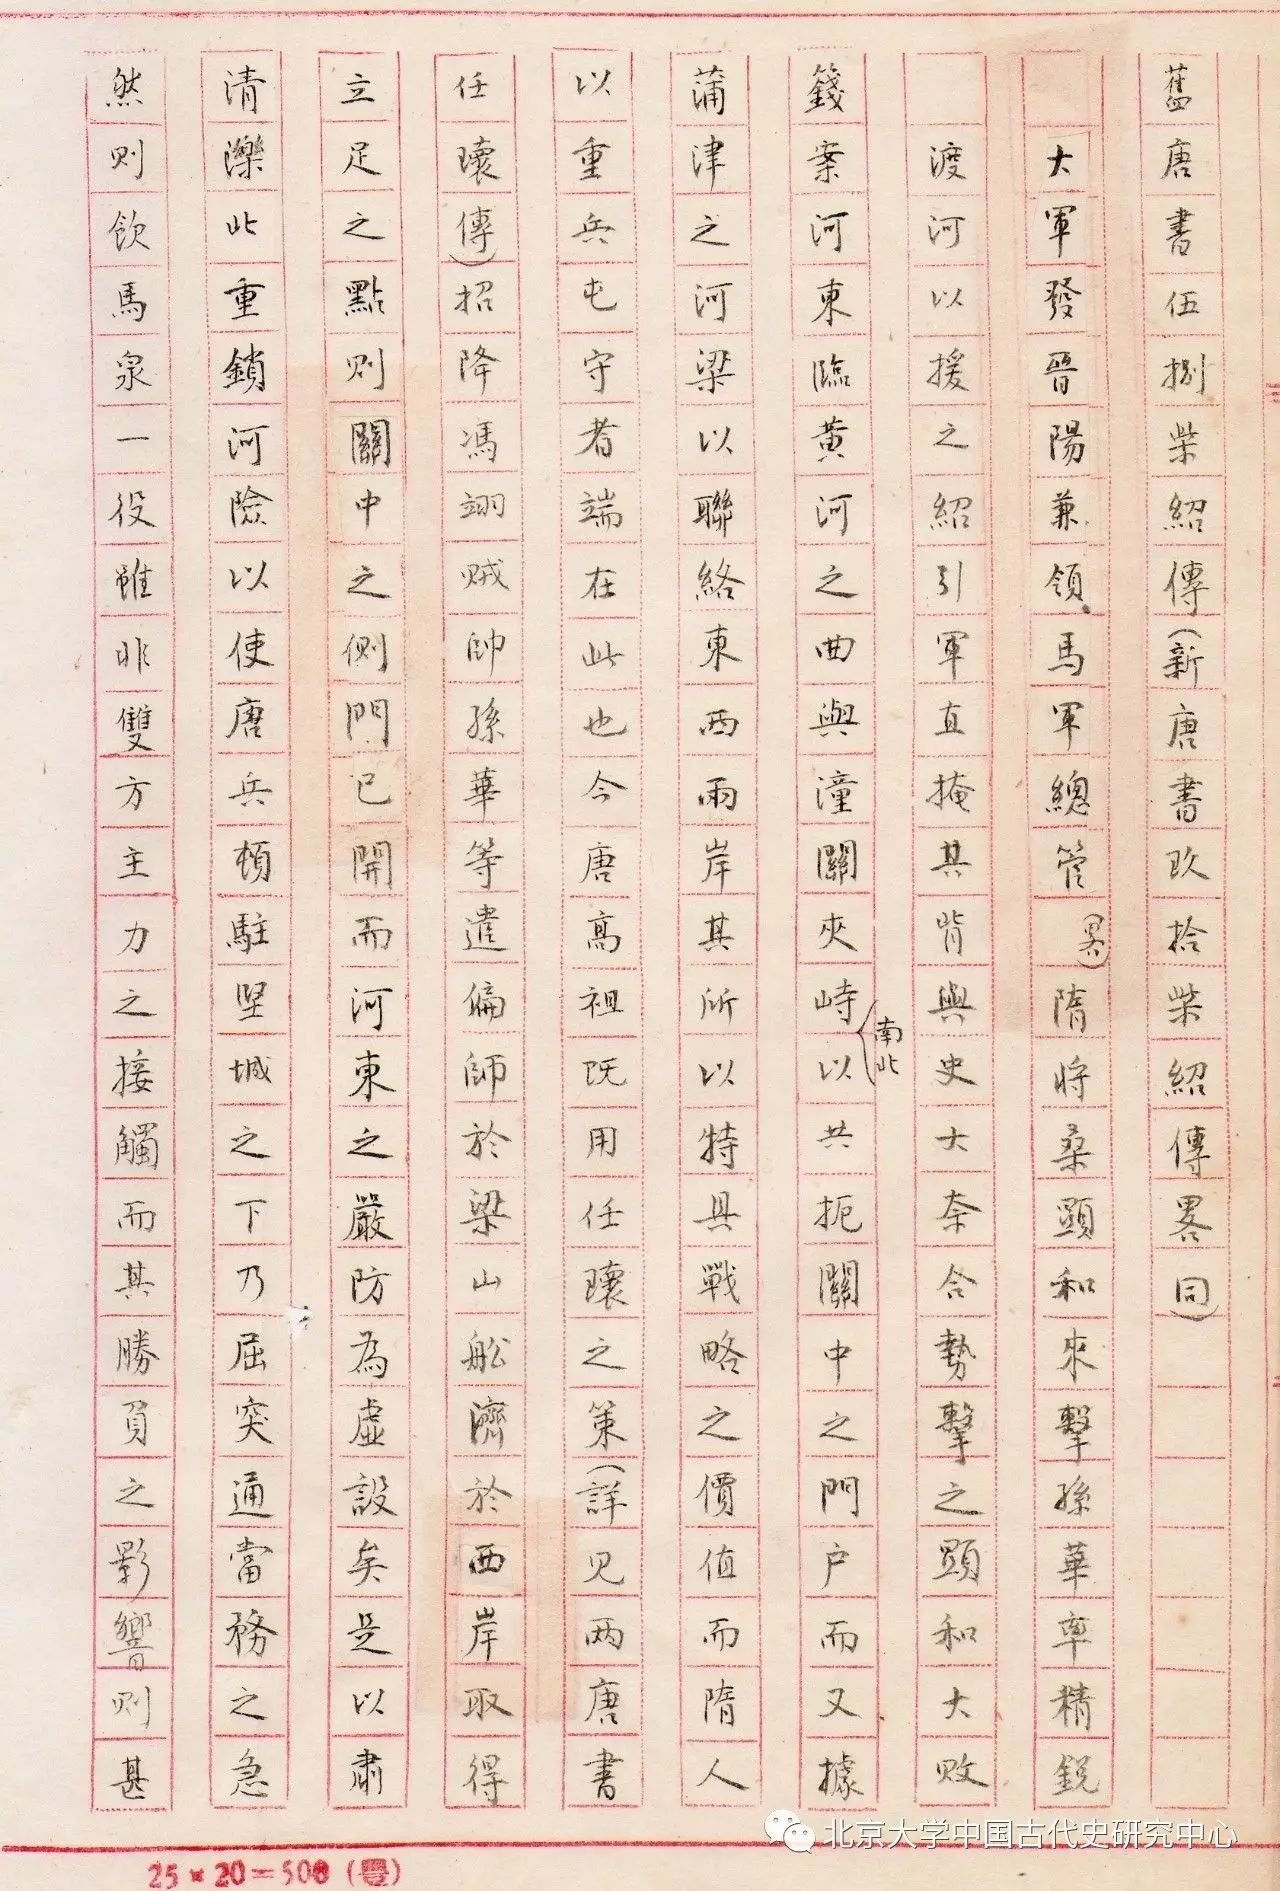 舊唐書伍捌柴紹傳(新唐書玖拾柴紹傳畧同)
大軍發晉陽兼領馬軍總管(畧)隋將桑顯和來擊孫華率精銳
渡河以援之紹引軍直掩其背與史大奈合勢擊之顯和大敗
箋案河東臨黃河之曲與潼關夾峙以共扼關中之門户而又據
南北
蒲津之河梁以聯絡東西兩岸其所以特具戰略之價值而隋人
以重兵屯守者端在此也今唐高祖既用任瓌之策(詳见两唐書
任瓌傳)招降馮翊賊帥孫華等遣偏師於梁山舩濟於西岸取得
立足之點則關中之側門已開而河東之嚴防為虛設矣是以肅
清濼此重鎖河險以使唐兵頓駐堅城之下乃屈突通當務之急
然則飲馬泉一役雖非雙方主力之接觸而其勝負之影響則甚
北京大学中国古代史研究中心
25×20=500(粵)